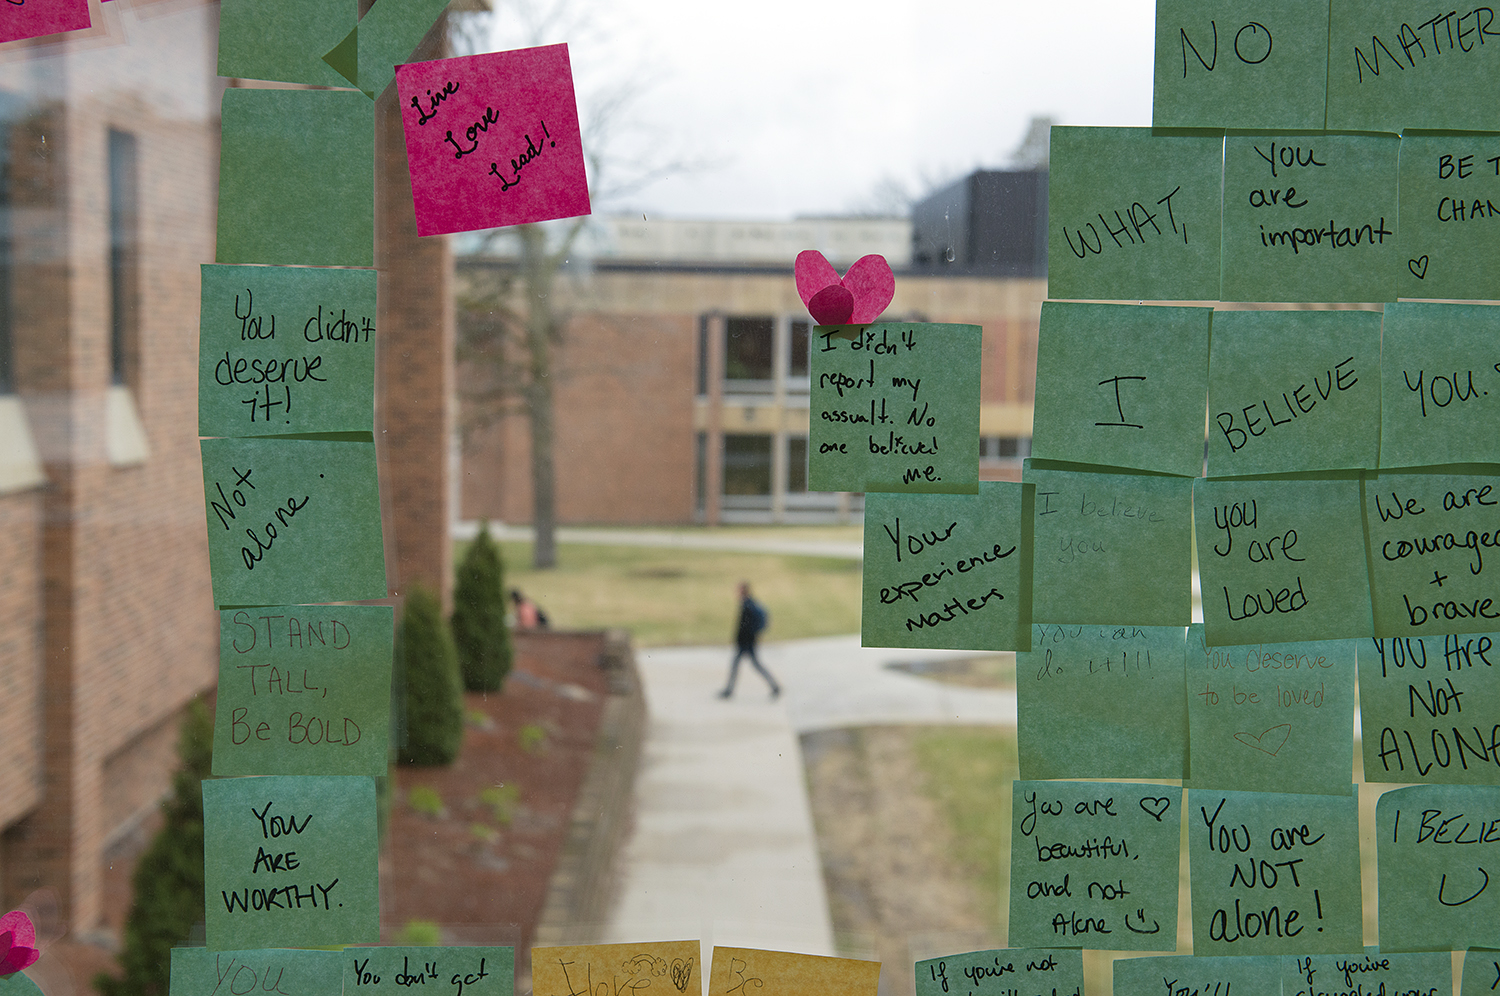 Live
Love
Lead!
You didn't
deserve
it!
Not
alone.
STAND
TALL,
Be BOLD
You
ARE
WORTHY.
YOU
You don't get
I love
Be
I didn't
report my
assualt. No
one believed
me.
Your
experience
matters
NO
MATTER
WHAT,
You
are
important
BE T
CHAN
I
BELIEVE
YOU.
I believe
you
you
are
Loved
We are
courage
+
brave
You can
do it!!!
You deserve
to be loved
You Are
Not
ALONE
You are
beautiful,
and not
Alone
You are
NOT
alone!
I BELIE
U
If you're not
You'll
If you've